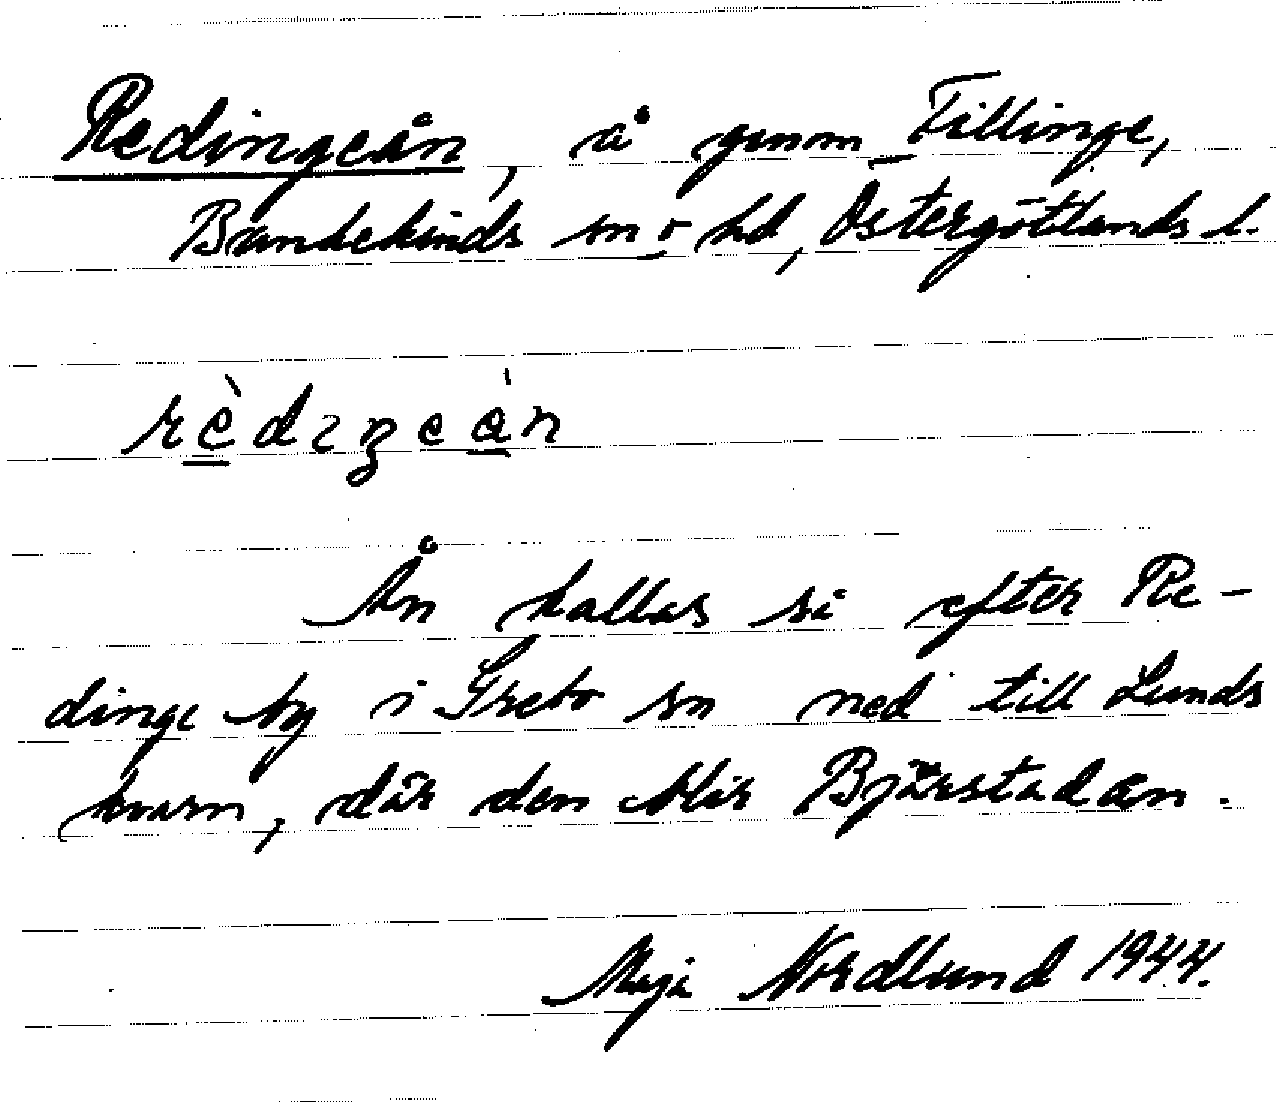 Redingeån, å genom Tillinge,
Bankekinds sn o hd, Östergötlands l.
rèdiŋeån
Ån kallas så efter Re-
dinge by i Grebo sn ned till Lunds
kvarn, där den blir Bjärstadån.
Maja Nordlund 1944.